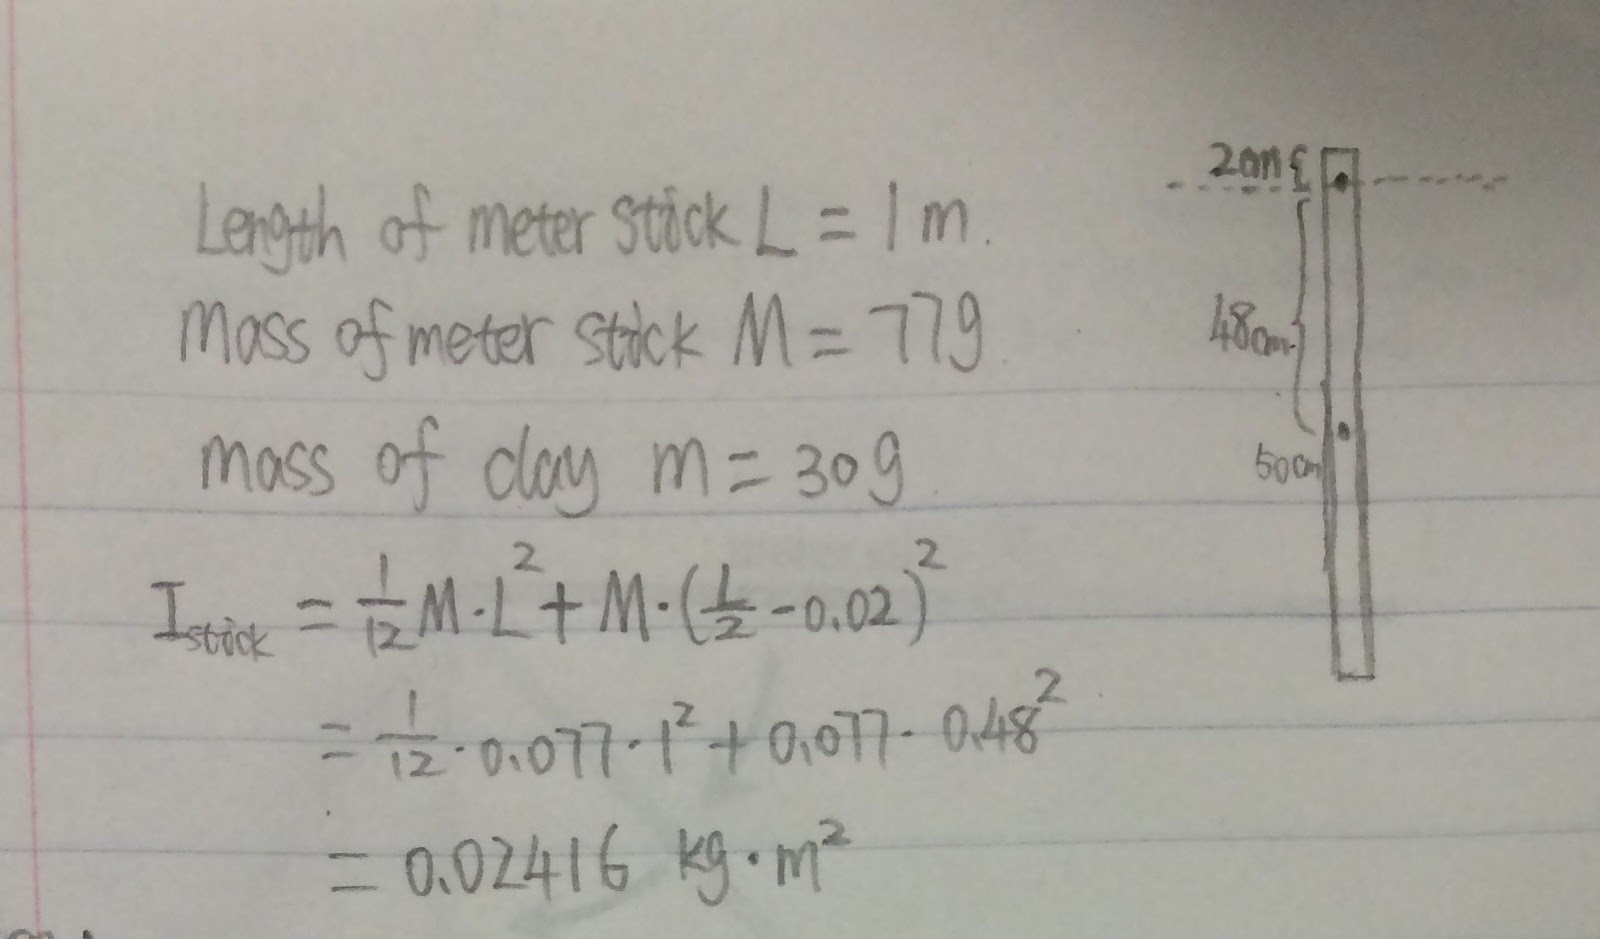 Length of meter stick L = 1 m.
Mass of meter stick M = 77g
mass of clay m = 30g
I stick = 1/12 M·L² + M·(L/2 - 0.02)²
= 1/12 · 0.077 · 1² + 0.077 · 0.48²
= 0.02416 kg·m²
2cm
48cm
50cm